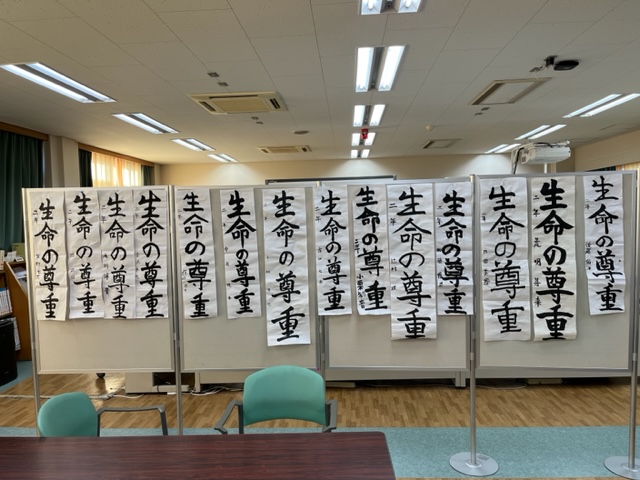 生命の尊重
生命の尊重
二年
生命の尊重
生命の尊重
生命の尊重
二年
生命の尊重
生命の尊重
二年
生命の尊重
生命の尊重
生命の尊重
生命の尊重
生命の尊重
生命の尊重
生命の尊重
二年